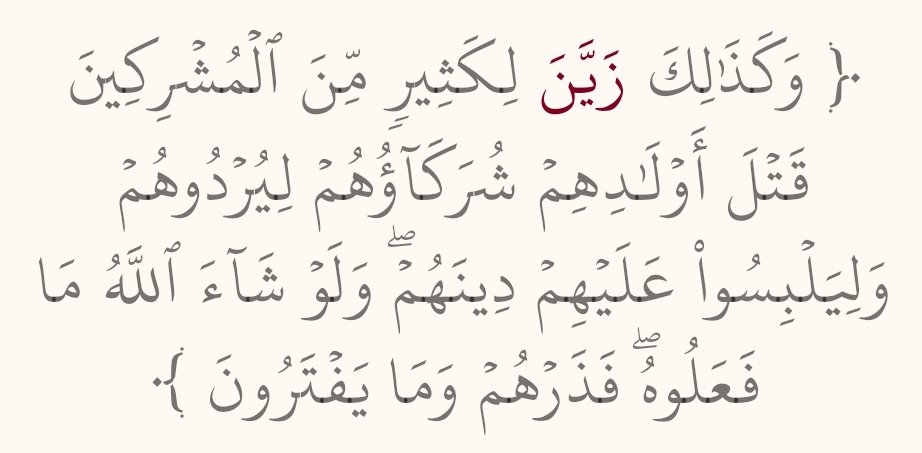 ﴿ وَكَذَٰلِكَ زَيَّنَ لِكَثِيرٖ مِّنَ ٱلۡمُشۡرِكِينَ
قَتۡلَ أَوۡلَٰدِهِمۡ شُرَكَآؤُهُمۡ لِيُرۡدُوهُمۡ
وَلِيَلۡبِسُواْ عَلَيۡهِمۡ دِينَهُمۡۖ وَلَوۡ شَآءَ ٱللَّهُ مَا
فَعَلُوهُۖ فَذَرۡهُمۡ وَمَا يَفۡتَرُونَ ﴾